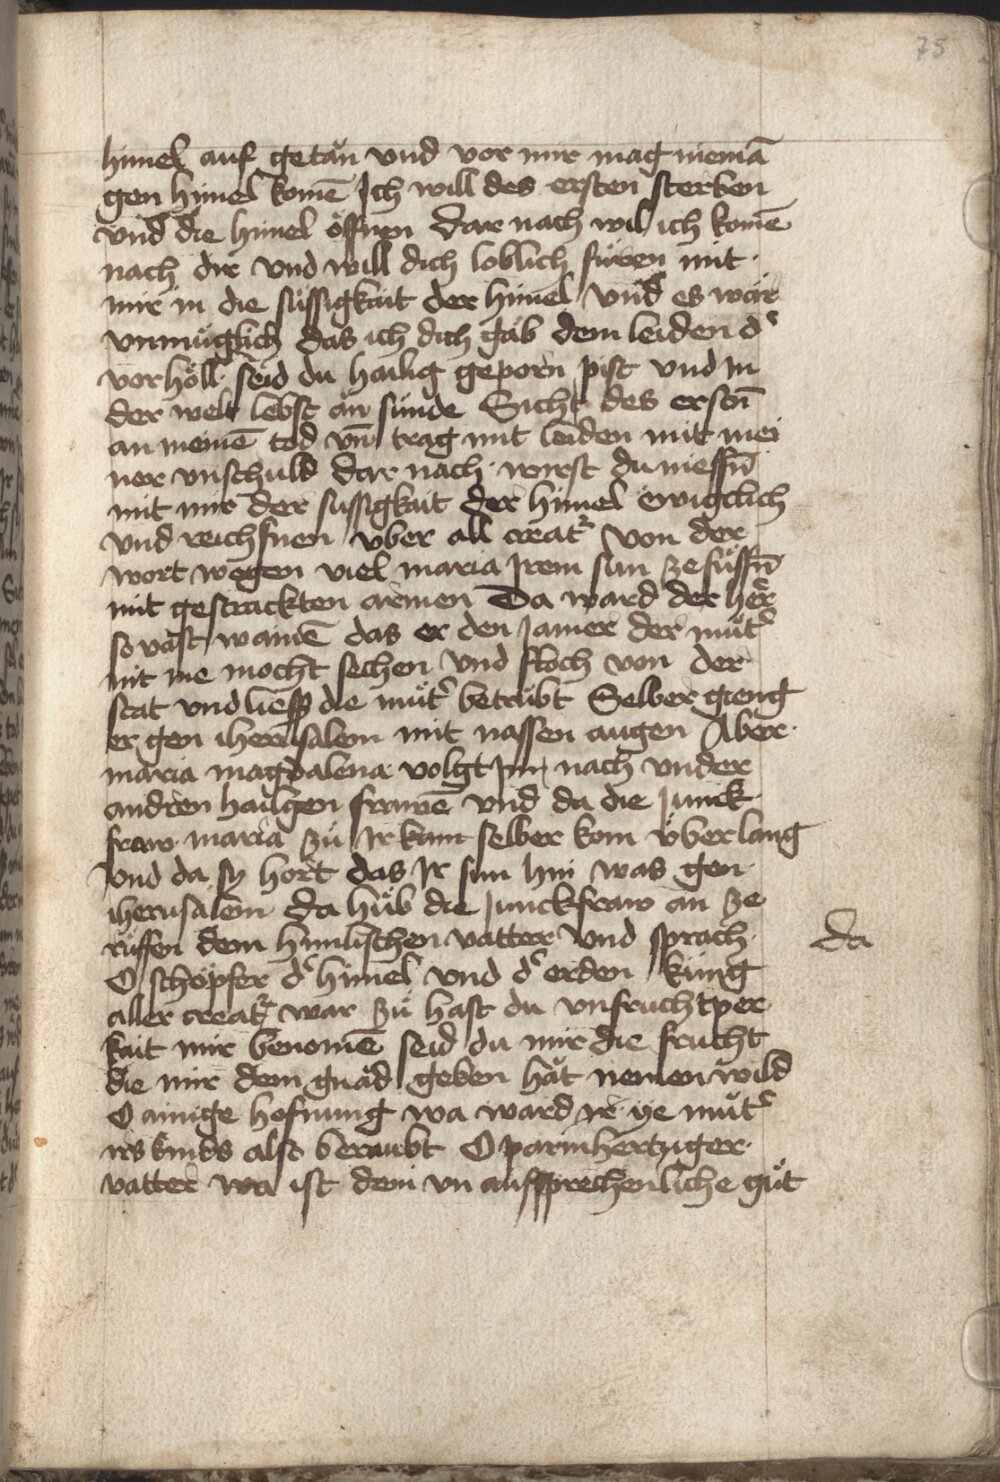 75
himel auf getän vnd vor mir mag niemā
gen himel komē Ich will des ersten sterben
vnd die himel öffnen dar nach wil ich komē
nach dir vnd will dich loblich füren mit
mir in die süssigkait der himel vnd es wär
vnmüglich das ich dich gäb dem leiden d'
vorhöll seid du hailig geporn pist vnd In
der welt lebst än sünde Sich des erstn̄
an meinē tod vn̄ trag mit leiden mit mei
ner vnschuld dar nach wirst du niessn̄
mit mir der sussigkait der himel ewigclich
vnd reichsnen vber all creat' von der
wort wegen viel maria Irem sun ze füssn̄
mit gestrackten armen Da ward der her'
so vast wainē das er den Jamer der müt'
nit me mocht sechen vnd floch von der
stat vnd liess die müt' betrübt Selber gieng
er gen iherusalem mit nassen augen Aber
maria magdalena volgt Im nach vnder
andren hailgen frawē vnd da die Junck
fraw maria zü Ir kam selber kom vber lang
vnd da sy hort das Ir sun hin was gen
iherusalem da hüb die Junckfraw an ze
rüffen dem himlischen vatter vnd sprach
da
O schöpfer d' himel vnd d' erden küng
aller creat' war zü hast du vnfruchtper
kait mir benomē seid du mir die frucht
die mir dem gnäd geben hät nemen wild
O ainige hofnung wa ward ye müt'
irs kinds also beraubt O parmhertziger
vatter wa ist dein vn aussprechenliche güt